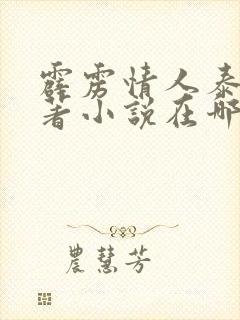 霹雳情人泰
著小说在哪
農慧芳